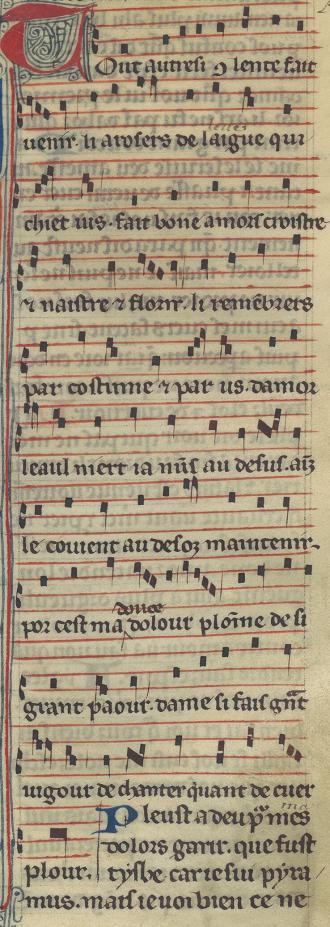 Tout autresi 9 lente fait
uenir. li arosers de laigue qui
chiet ius. fait bone amors croistre
⁊ naistre ⁊ florir. li remẽbrers
par costume ⁊ par us. damor
leaul niert ia nũs au desus. aĩz
le couient au desoz maintenir.
por cest ma douce dolour ploĩne de si
grant paour. dame si fais gñt
uigour de chanter quant de cuer
plour. Pleust a deu pʳ mes
dolors garir. que fust
tysbe car ie sui pyra
mus. mais ie uoi bien ce ne